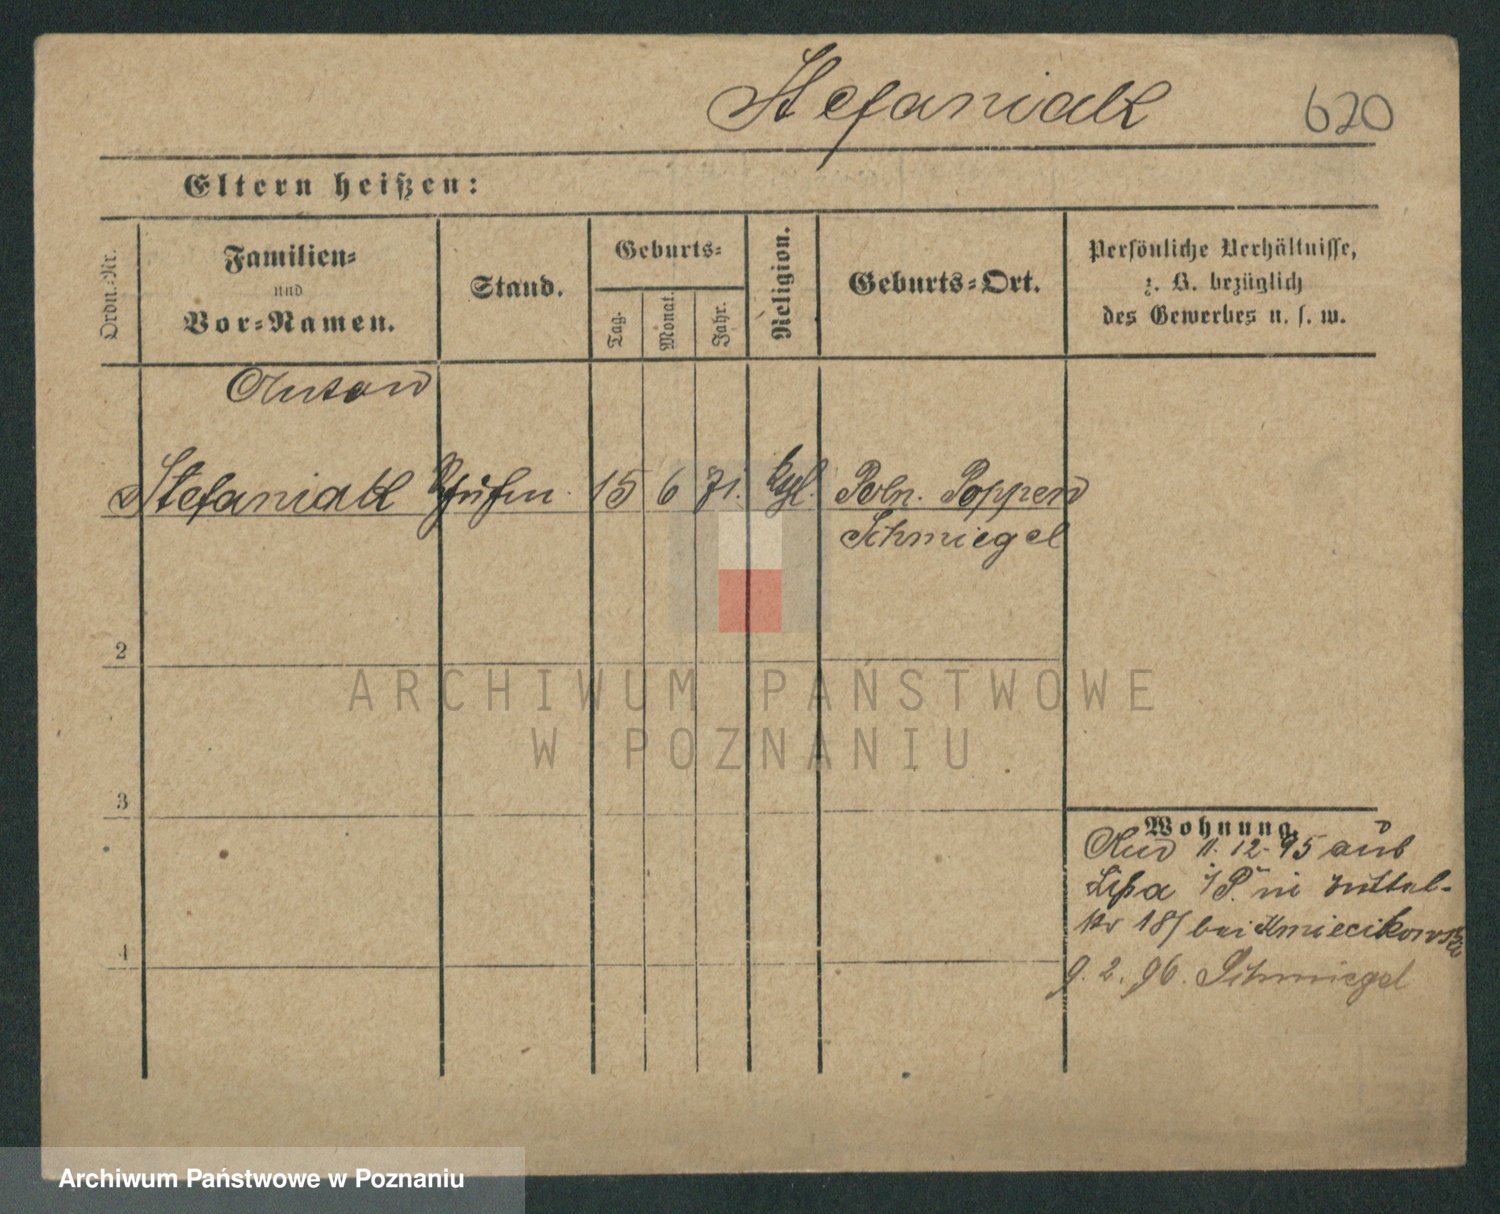 Stefaniak 620
Eltern heißen:
Ordn.-Nr.
Familien-
und
Vor-Namen.
Stand.
Geburts-
Tag.
Monat.
Jahr.
Religion.
Geburts-Ort.
Persönliche Verhältnisse,
z. B. bezüglich
des Gewerbes u. s. w.
Anton
Stefaniak 15 6 71. kgl. Poln. Poppen
Schmiegel
2
3
4
Wohnung.
11.12.95 aus
Lissa i/P. in
18/ bei Kmiecikowski
9.2.96. Schmiegel
ARCHIWUM PAŃSTWOWE
W POZNANIU
Archiwum Państwowe w Poznaniu